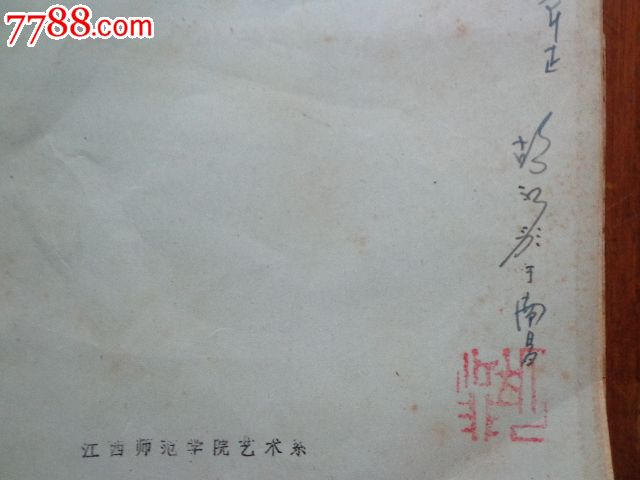 7788.com
斧正
胡江非于南昌
江西师范学院艺术系